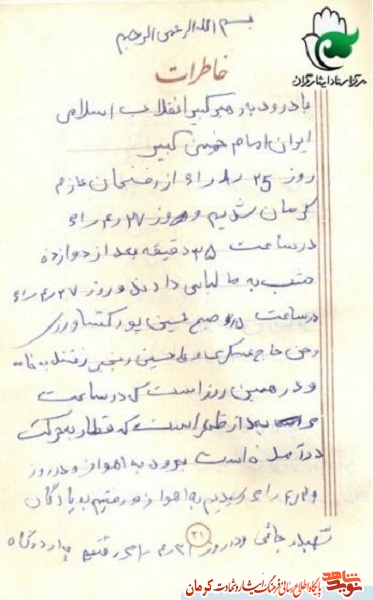 بسم الله الرحمن الرحیم
مرکز اسناد ایثارگران
خاطرات
با درود به رهبر کبیر انقلاب اسلامی
ایران امام خمینی کبیر
روز ۲۵ از رفسنجان عازم
کرمان شدیم و روز ۲۷
در ساعت ۳۵ دقیقه بعد از دوازده
شب به ما لباس دادند و روز ۲۷
در ساعت صبح حسین پور کشاورزی
و حاج عسکری و علی حسین رنجبر رفتند به
و در همین روز است که در ساعت
بعد از ظهر است که قطار به حرکت
در آمده است برود به اهواز و در روز
رسیدیم به اهواز و رفتیم به پادگان
و در روز رفتیم به اردوگاه
۲۱
شاهد نوید
پایگاه اطلاع رسانی فرهنگ ایثار و شهادت کرمان